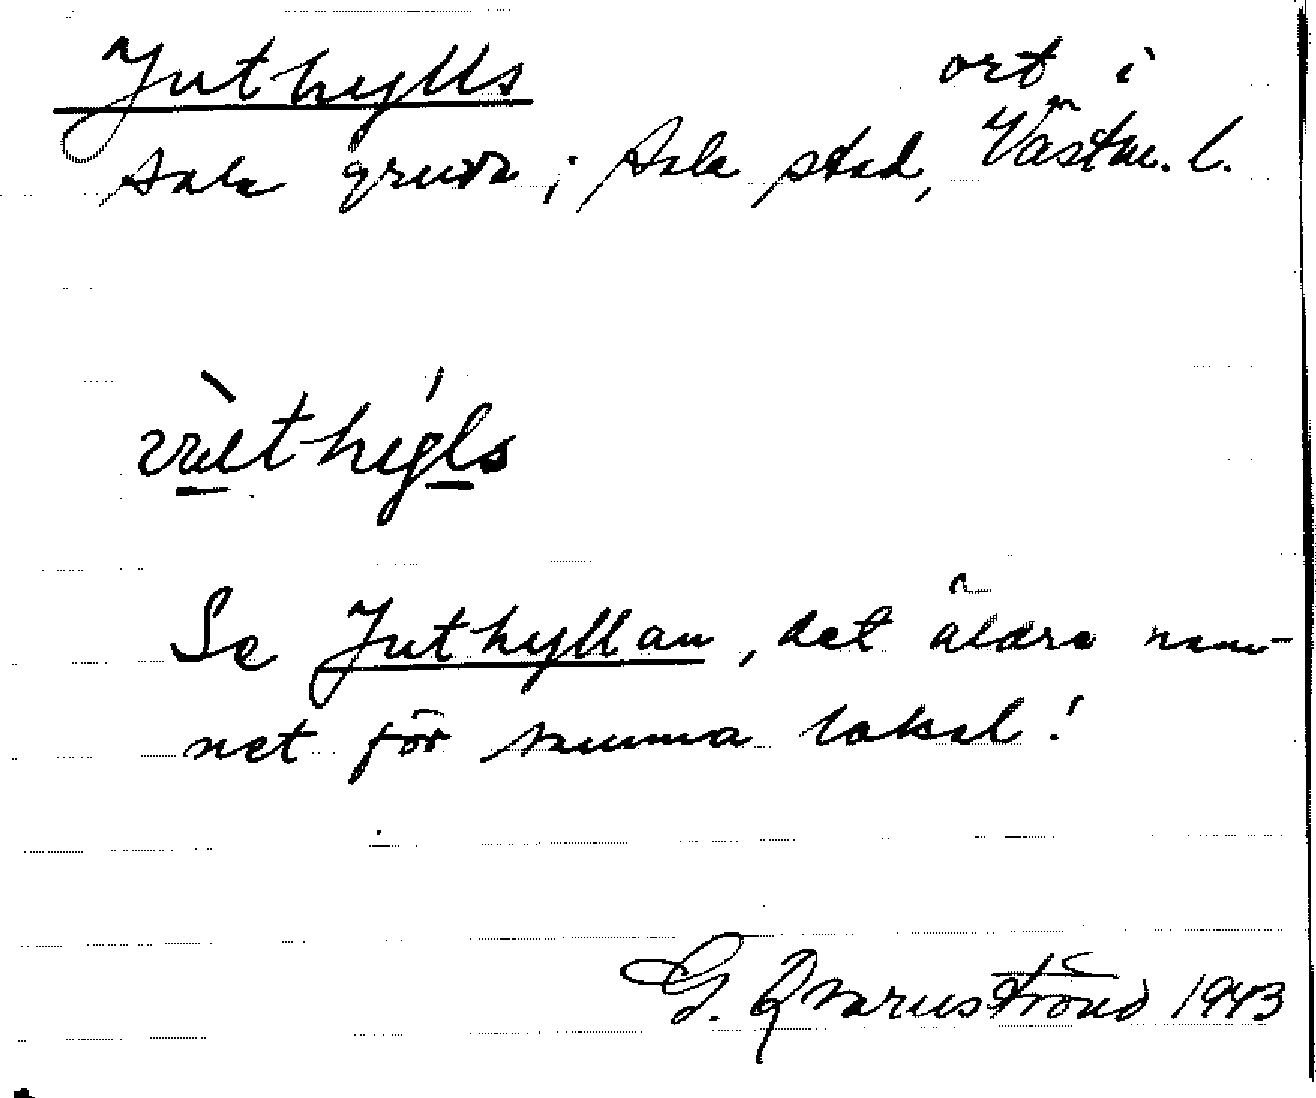 Juthylls ort i
Sala gruva; Sala stad, Västm. l.
Se Juthyllan, det äldre nam-
net för samma lokal!
G. Qvarnström 1943